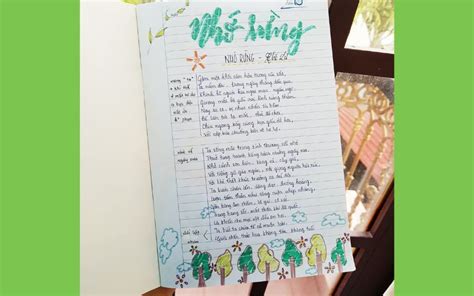 Nhớ rừng
NHỚ RỪNG - Thế Lữ
Gậm một khối căm hờn trong cũi sắt,
Ta nằm dài, trông ngày tháng dần qua,
Khinh lũ người kia ngạo mạn, ngẩn ngơ,
Giương mắt bé giễu oai linh rừng thẳm.
Nay sa cơ, bị nhục nhằn tù hãm
Để làm trò lạ mắt, thứ đồ chơi.
Chịu ngang bầy cùng bọn gấu dở hơi,
Với cặp báo chuồng bên vô tư lự.
Ta sống mãi trong tình thương nỗi nhớ
Thuở tung hoành hống hách những ngày xưa.
Nhớ cảnh sơn lâm, bóng cả, cây già,
Với tiếng gió gào ngàn, với giọng nguồn hét núi,
Với khi thét khúc trường ca dữ dội,
Ta bước chân lên, dõng dạc, đường hoàng,
Lượn tấm thân như sóng cuộn nhịp nhàng,
Vờn bóng âm thầm, lá gai, cỏ sắc.
Trong hang tối, mắt thần khi đã quắc,
Là khiến cho mọi vật đều im hơi.
Ta biết ta chúa tể cả muôn loài,
Giữa chốn thảo hoa không tên, không tuổi.